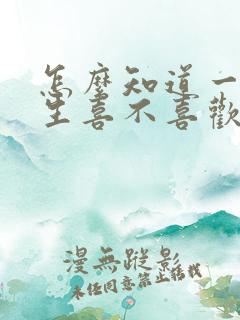 怎麼知道一
生喜不喜歡
漫無蹤影
未經同意禁止轉載